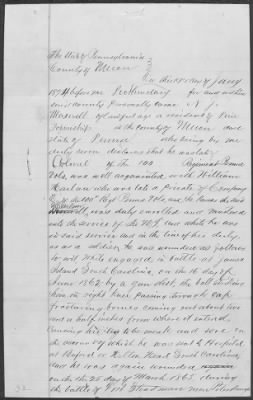 The State of Pennsylvania
County of Mercer
On this day of Jany
1874 before me Prothonotary for and within
said County Personally came N. J.
Maxwell of lawful age a resident of Pine
Township in the County of Mercer and
State of Penna who being by me
duly sworn that he was late
Colonel of the 100 Regiment Penna
Vols, was well acquainted with William
Harlan who was late a Private of Company
100th Regt Penna Vols, and he knows the said
was duly enrolled and mustered
into the service of the U.S. and while he was
in said service and in the line of his duty
as a soldier, he was wounded as follows
to wit While engaged in battle at James
Island South Carolina on the 16 day of
June 1862 by a gun shot, the ball striking
him on right knee passing through cap
fracturing bones coming out about one
and a half inches from where it entered
Causing his leg to be weak and sore on
the account of which he was sent to Hospital
at Buford or Hilton Head South Carolina,
and he was again wounded
on the 25 day of March 1865 during
the battle of Fort Steadman near Petersburg